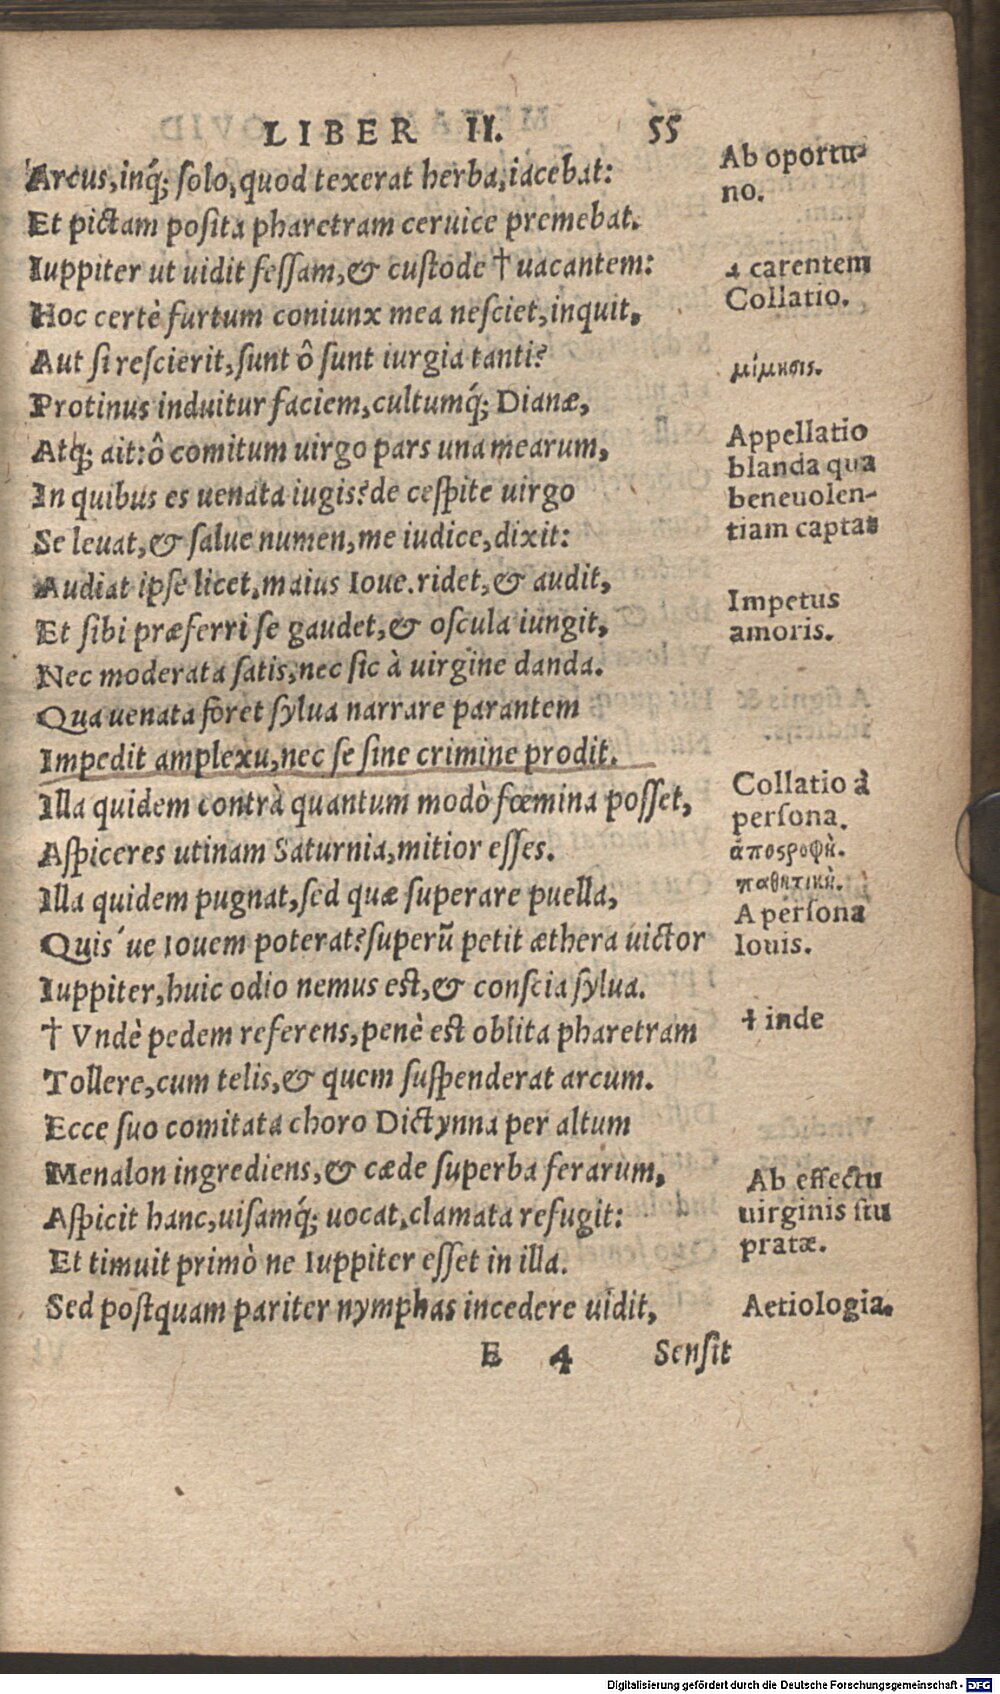 LIBER II. 55
Arcus,inq́; solo,quod texerat herba,iacebat:
Et pictam posita pharetram ceruice premebat.
Iuppiter ut uidit fessam,& custode † uacantem:
Hoc certè furtum coniunx mea nesciet,inquit,
Aut si rescierit,sunt ô sunt iurgia tanti?
Protinus induitur faciem,cultumq́; Dianæ,
Atq; ait:ô comitum uirgo pars una mearum,
In quibus es uenata iugis?de cespite uirgo
Se leuat,& salue numen,me iudice,dixit:
Audiat ipse licet,maius Ioue.ridet,& audit,
Et sibi præferri se gaudet,& oscula iungit,
Nec moderata satis,nec sic à uirgine danda.
Qua uenata foret sylua narrare parantem
Impedit amplexu,nec se sine crimine prodit.
Illa quidem contrà quantum modò fœmina posset,
Aspiceres utinam Saturnia,mitior esses.
Illa quidem pugnat,sed quæ superare puella,
Quis´ue Iouem poterat?superũ petit æthera uictor
Iuppiter,huic odio nemus est,& conscia sylua.
† Vndè pedem referens,penè est oblita pharetram
Tollere,cum telis,& quem suspenderat arcum.
Ecce suo comitata choro Dictynna per altum
Menalon ingrediens,& cæde superba ferarum,
Aspicit hanc,uisamq́; uocat,clamata refugit:
Et timuit primò ne Iuppiter esset in illa.
Sed postquam pariter nymphas incedere uidit,
E 4 Sensit
Ab oportu-
no.
† carentem
Collatio.
μίμησις.
Appellatio
blanda qua
beneuolen-
tiam captat
Impetus
amoris.
Collatio à
persona.
ἀποςροφὴ.
παθητικὴ.
A persona
Iouis.
† inde
Ab effectu
uirginis stu
pratæ.
Aetiologia.
Digitalisierung gefördert durch die Deutsche Forschungsgemeinschaft - DFG